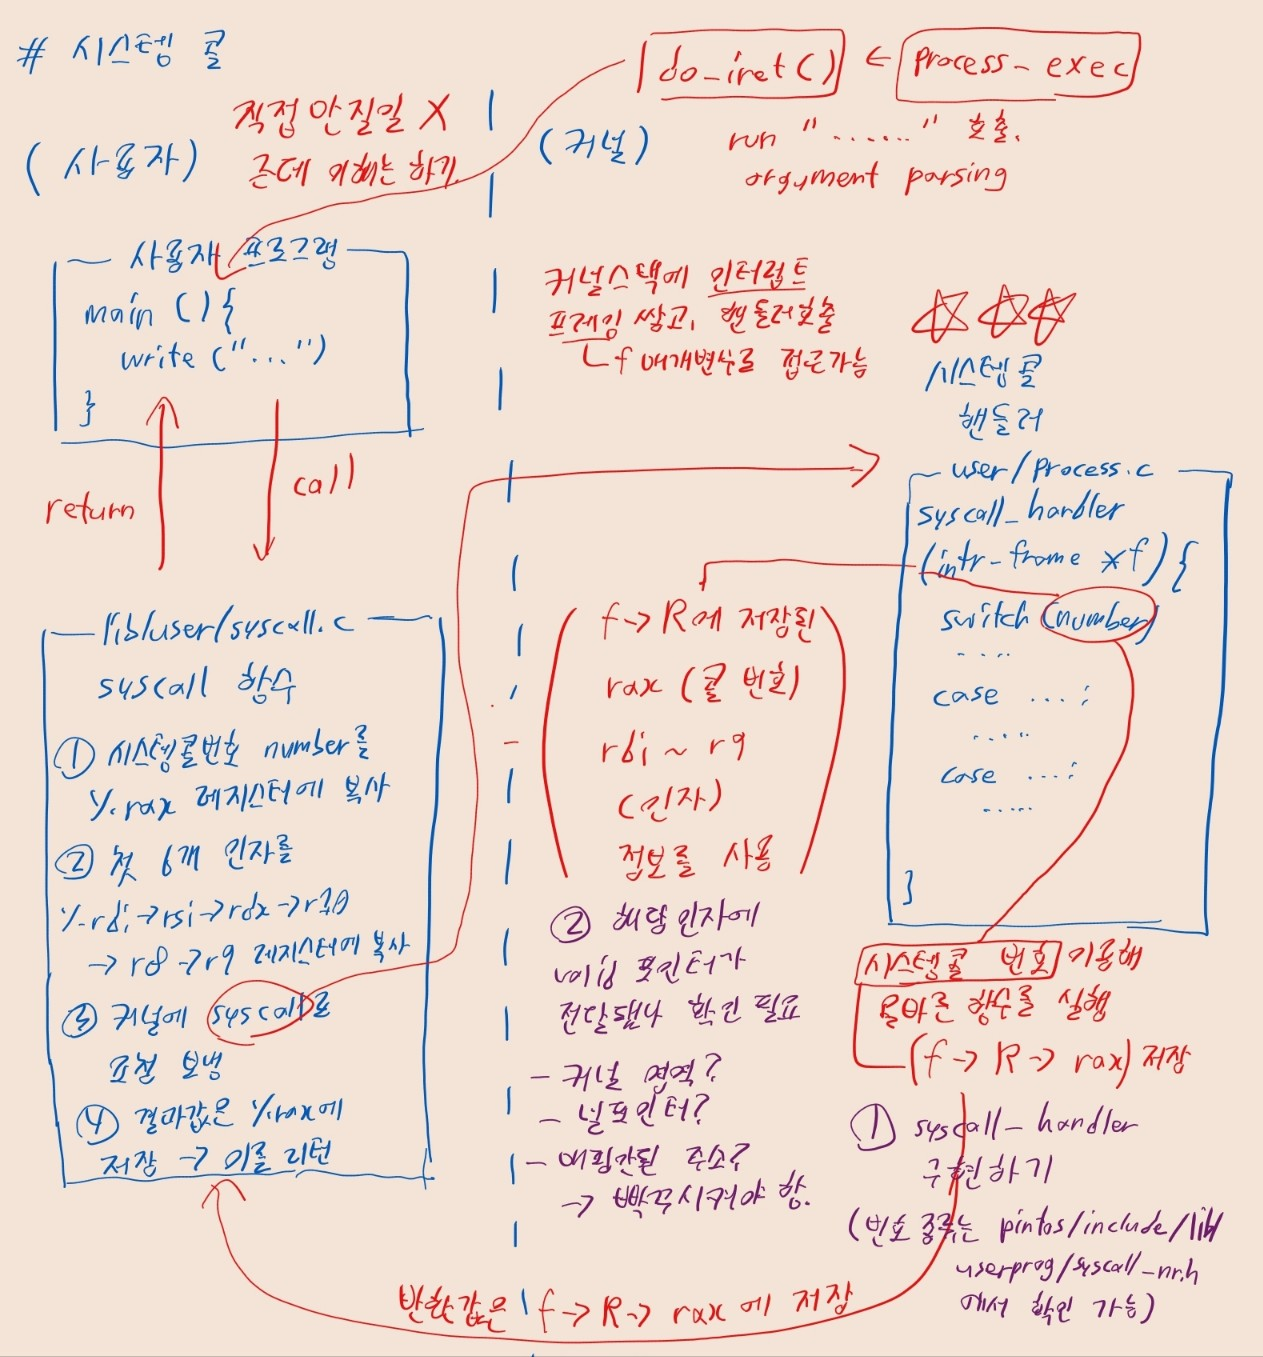 # 시스템 콜
직접 만질일 X
근데 이해는 하기
(사용자)
(커널)
do_iret() ← process_exec
run "......" 호출.
argument parsing
사용자 프로그램
main () {
write ("...")
}
return
call
커널스택에 인터럽트
프레임 쌓고, 핸들러호출
└ f 매개변수로 접근가능
시스템콜
핸들러
user/process.c
syscall_handler
(intr-frame *f) {
switch (number)
....
case ... :
.....
case ... :
.....
}
lib/user/syscall.c
syscall 함수
① 시스템콜번호 number를
%.rax 레지스터에 복사
② 첫 6개 인자를
%.rdi→rsi→rdx→r10
→ r8→r9 레지스터에 복사
③ 커널에 syscall로
요청 보냄
④ 결과값은 %rax에
저장 → 이를 리턴
f→R에 저장된
rax (콜 번호)
rdi ~ r9
(인자)
정보를 사용
② 해당 인자에
void 포인터가
전달됐나 확인 필요
- 커널 영역?
- 널포인터?
- 매핑안된 주소?
→ 빠꾸시켜야 함.
시스템콜 번호 이용해
올바른 함수를 실행
(f → R → rax) 저장
① syscall_handler
구현하기
(번호 종류는 pintos/include/lib/
userprog/syscall_nr.h
에서 확인 가능)
반환값은 f→R→rax에 저장